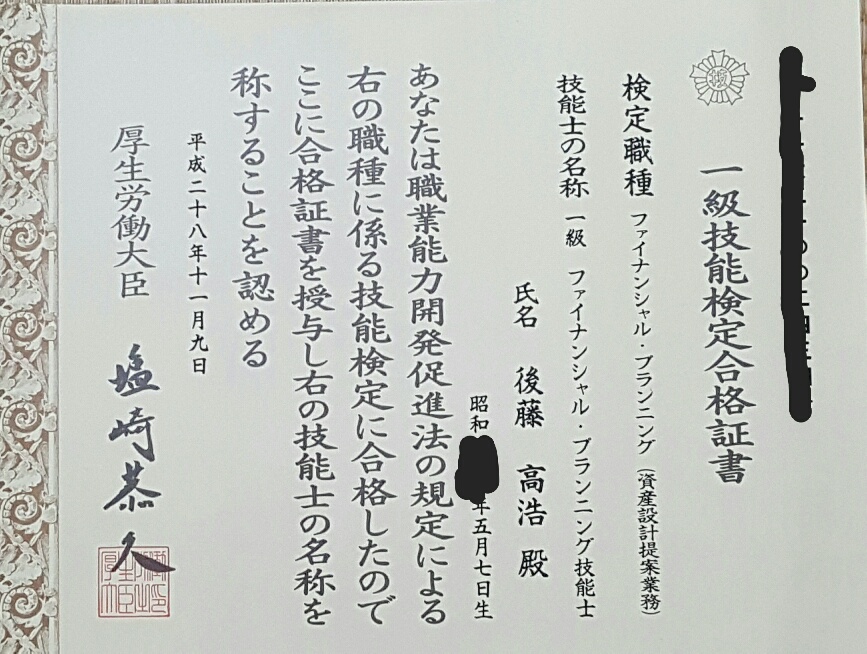 一級技能検定合格証書
検定職種 ファイナンシャル・プランニング (資産設計提案業務)
技能士の名称 一級 ファイナンシャル・プランニング技能士
氏名 後藤 高浩 殿
昭和 年五月七日生
あなたは職業能力開発促進法の規定による
右の職種に係る技能検定に合格したので
ここに合格証書を授与し右の技能士の名称を
称することを認める
平成二十八年十一月九日
厚生労働大臣 塩崎恭久